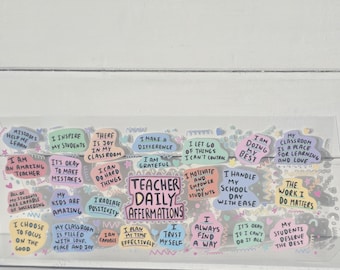 MISTAKES
HELP ME
LEARN
I INSPIRE
MY
STUDENTS
THERE
IS JOY
IN MY
CLASSROOM
I MAKE A
DIFFERENCE
I LET GO
OF THINGS
I CAN'T CONTROL
I AM
DOING MY
BEST
MY
CLASSROOM IS
A PLACE
FOR LEARNING
AND LOVE
I AM
AN AMAZING
TEACHER
IT'S OKAY
TO MAKE
MISTAKES
I CAN
DO HARD
THINGS
I AM
GRATEFUL
I MOTIVATE
AND
EMPOWER
MY
STUDENTS
I HANDLE
MY
SCHOOL
DAY
WITH EASE
THE
WORK I
DO MATTERS
MY
STUDENTS
ARE CAPABLE
MY
KIDS ARE
AMAZING
I RADIATE
POSITIVITY
TEACHER
DAILY
AFFIRMATIONS
I CHOOSE
TO FOCUS
ON THE
GOOD
MY
CLASSROOM
IS FILLED
WITH LOVE,
PEACE AND
JOY
I AM
CAPABLE
I PLAN
MY TIME
EFFECTIVELY
I
TRUST
MYSELF
I
ALWAYS
FIND
A WAY
IT'S OKAY
IF I CAN'T
DO IT ALL
MY
STUDENTS
DESERVE
THE BEST